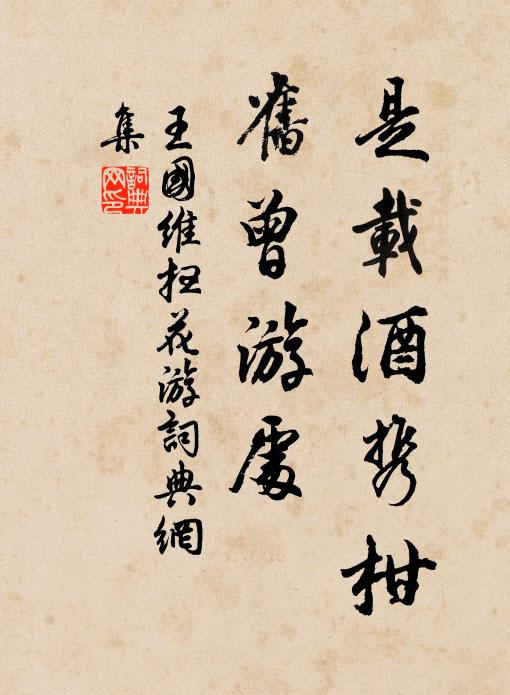 是載酒携柑
舊曾游處
王國維掃花游詞典網
集
詞典
网印